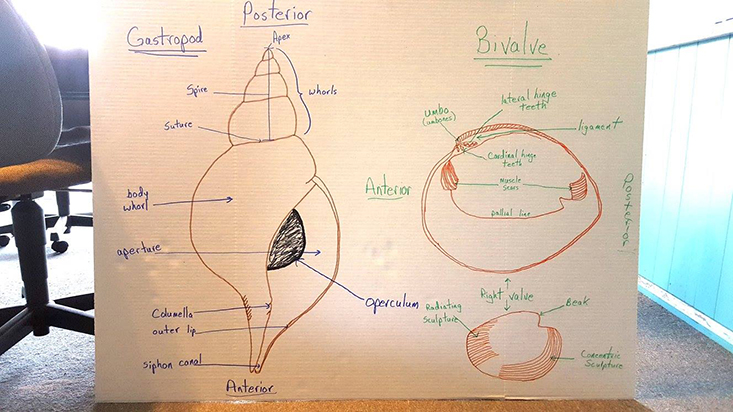 Posterior
Gastropod
Apex
Spire
whorls
Suture
body
whorl
aperture
Operculum
Columella
outer lip
siphon canal
Anterior
Bivalve
umbo
(umbones)
lateral hinge
teeth
ligament
Cardinal hinge
teeth
Anterior
Muscle
Scars
Posterior
Pallial line
Right valve
Radiating
Sculpture
Beak
Concentric
Sculpture